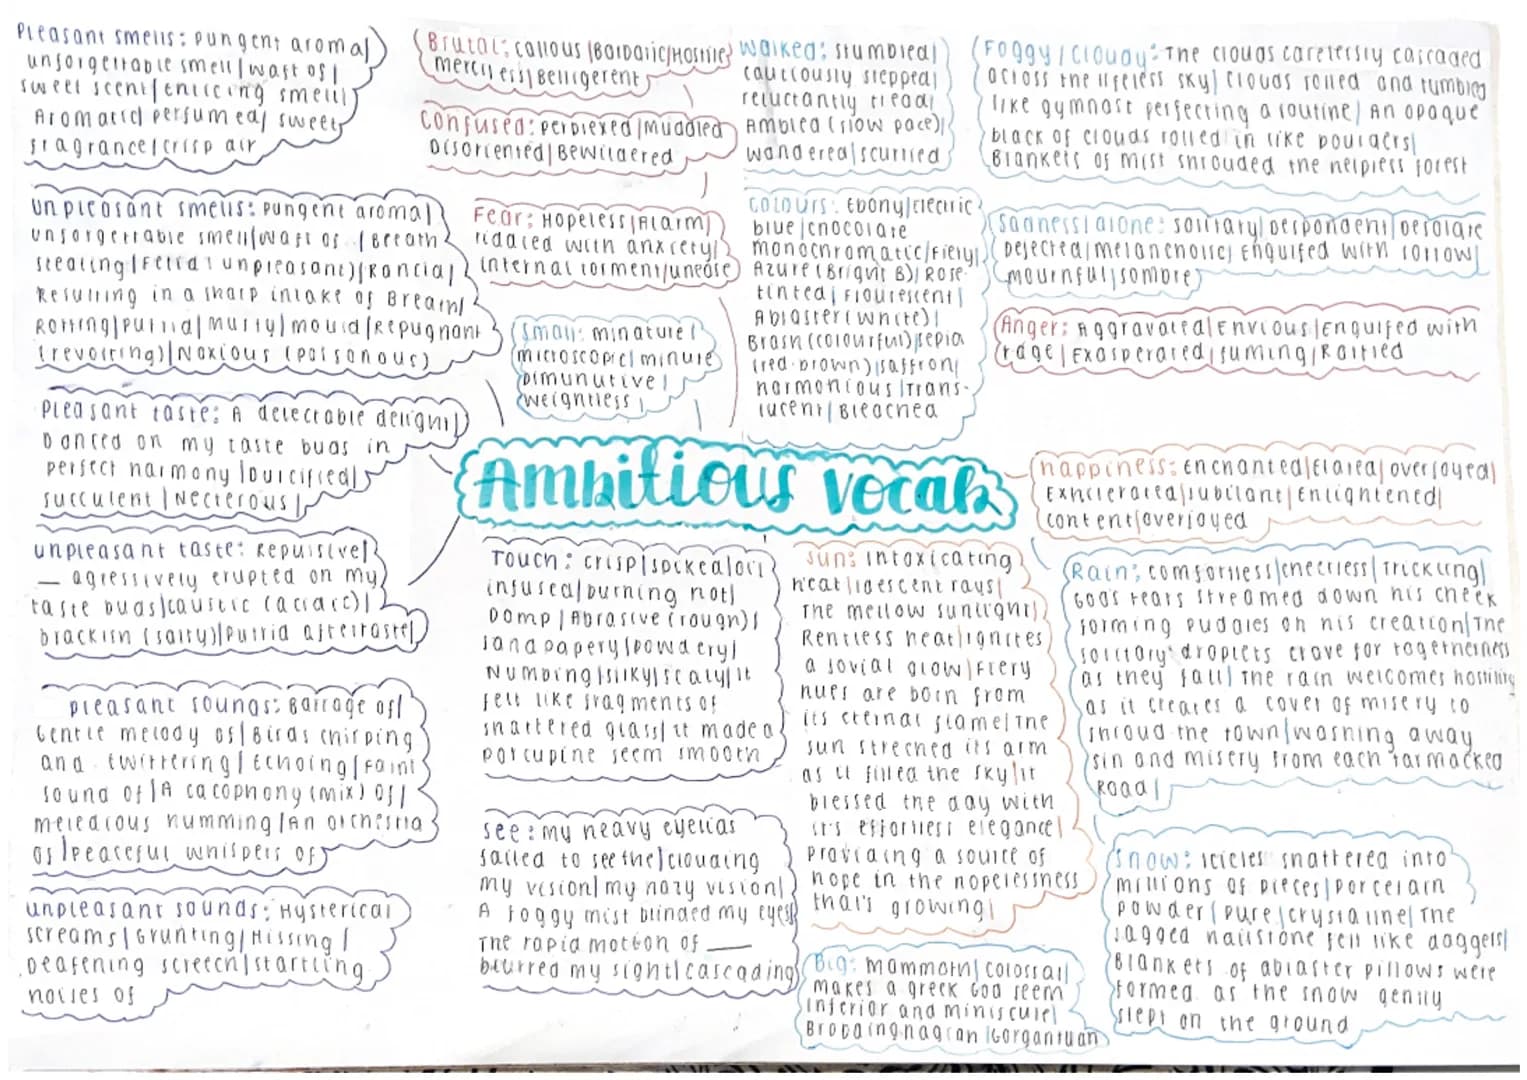 Pleasant smells: pungent aroma/
unforgettable smell/waft of/
sweet scent/enticing smell/
Aromatic/perfumed/sweet
fragrance/crisp air
Brutal: callous/Barbaric/Hostile/
merciless/Belligerent
Confused: perplexed/Muddled
Disoriented/Bewildered
Walked: stumbled/
cautiously stepped/
reluctantly tread/
Ambled (slow pace)/
wandered/scurried
Foggy/Cloudy: The clouds carelessly cascaded
across the lifeless sky/clouds rolled and tumbled
like gymnast perfecting a routine/An opaque
black of clouds rolled in like boulders/
Blankets of mist shrouded the helpless forest
unpleasant smells: pungent aroma/
unforgettable smell/waft of../Breath
stealing/Fetid (unpleasant)/Rancid/
Resulting in a sharp intake of Breath/
Rotting/putrid/Musty/mould/Repugnant
(revolting)/Noxious (poisonous)
Fear: Hopeless/Alarm/
riddled with anxiety/
internal torment/unease
Colours: Ebony/electric
blue/chocolate
monochromatic/Fiery/
Azure (Bright B)/Rose
tinted/Flourescent/
Ablaster (white)/
Brash (colourful)/sepia
(red-brown)/saffron/
harmonious/Trans-
lucent/Bleached
Sadness/alone: solitary/despondent/Desolate
Dejected/melancholic/Engulfed with sorrow/
mournful/sombre
Small: minature/
microscopic/minute
Dimunutive/
weightless
Anger: Aggravated/Envious/Engulfed with
rage/Exasperated/fuming/Rattled
Pleasant taste: A delectable delight/
Danced on my taste buds in
perfect harmony/
succulent/Necterous/
Ambitious vocab
Happiness: Enchanted/Elated/overjoyed/
Exhilerated/Jubilant/Enlightened/
content/overjoyed
unpleasant taste: Repulsive/
__ agressively erupted on my
taste buds/caustic (acidic)/
brackish (salty)/putrid aftertaste/
Touch: crisp/spiked/oil
infused/burning hot/
Damp/Abrasive (rough)/
sandpapery/powdery/
Numbing/silky/scaly/it
felt like fragments of
shattered glass/it made a
porcupine seem smooth
Sun: Intoxicating
heat/idescent rays/
The mellow sunlight/
Rentless heat/ignites
a jovial glow/Fiery
hues are born from
its eternal flame/The
sun streched its arm
as it filled the sky/it
blessed the day with
it's effortless elegance/
Providing a source of
hope in the hopelessness
that's growing/
Rain: comfortless/cheerless/Trickling/
Gods tears streamed down his cheek
forming puddles on his creation/The
solitary droplets crave for togetherness
as they fall/The rain welcomes hostility
as it creates a cover of misery to
shroud the town/washing away
sin and misery from each tarmacked
Road/
pleasant sounds: Barrage of/
Gentle melody of/Birds chirping
and twittering/Echoing/Faint
sound of/A cacophony (mix) of/
melodious humming/An orchestra
of/peaceful whispers of
See: my heavy eyelids
failed to see the/clouding
my vision/my hazy vision/
A foggy mist blinded my eyes/
The rapid motion of ___
blurred my sight/cascading
Snow: Icicles shattered into
millions of pieces/porcelain
powder/pure/crystaline/The
jagged hailstone fell like daggers/
Blankets of ablaster pillows were
formed as the snow gently
slept on the ground
unpleasant sounds: Hysterical
screams/Grunting/Hissing/
Deafening screech/startling
noises of
Big: mammoth/colossal/
makes a greek God seem
inferior and miniscule/
Brobdingnagian/Gorgantuan